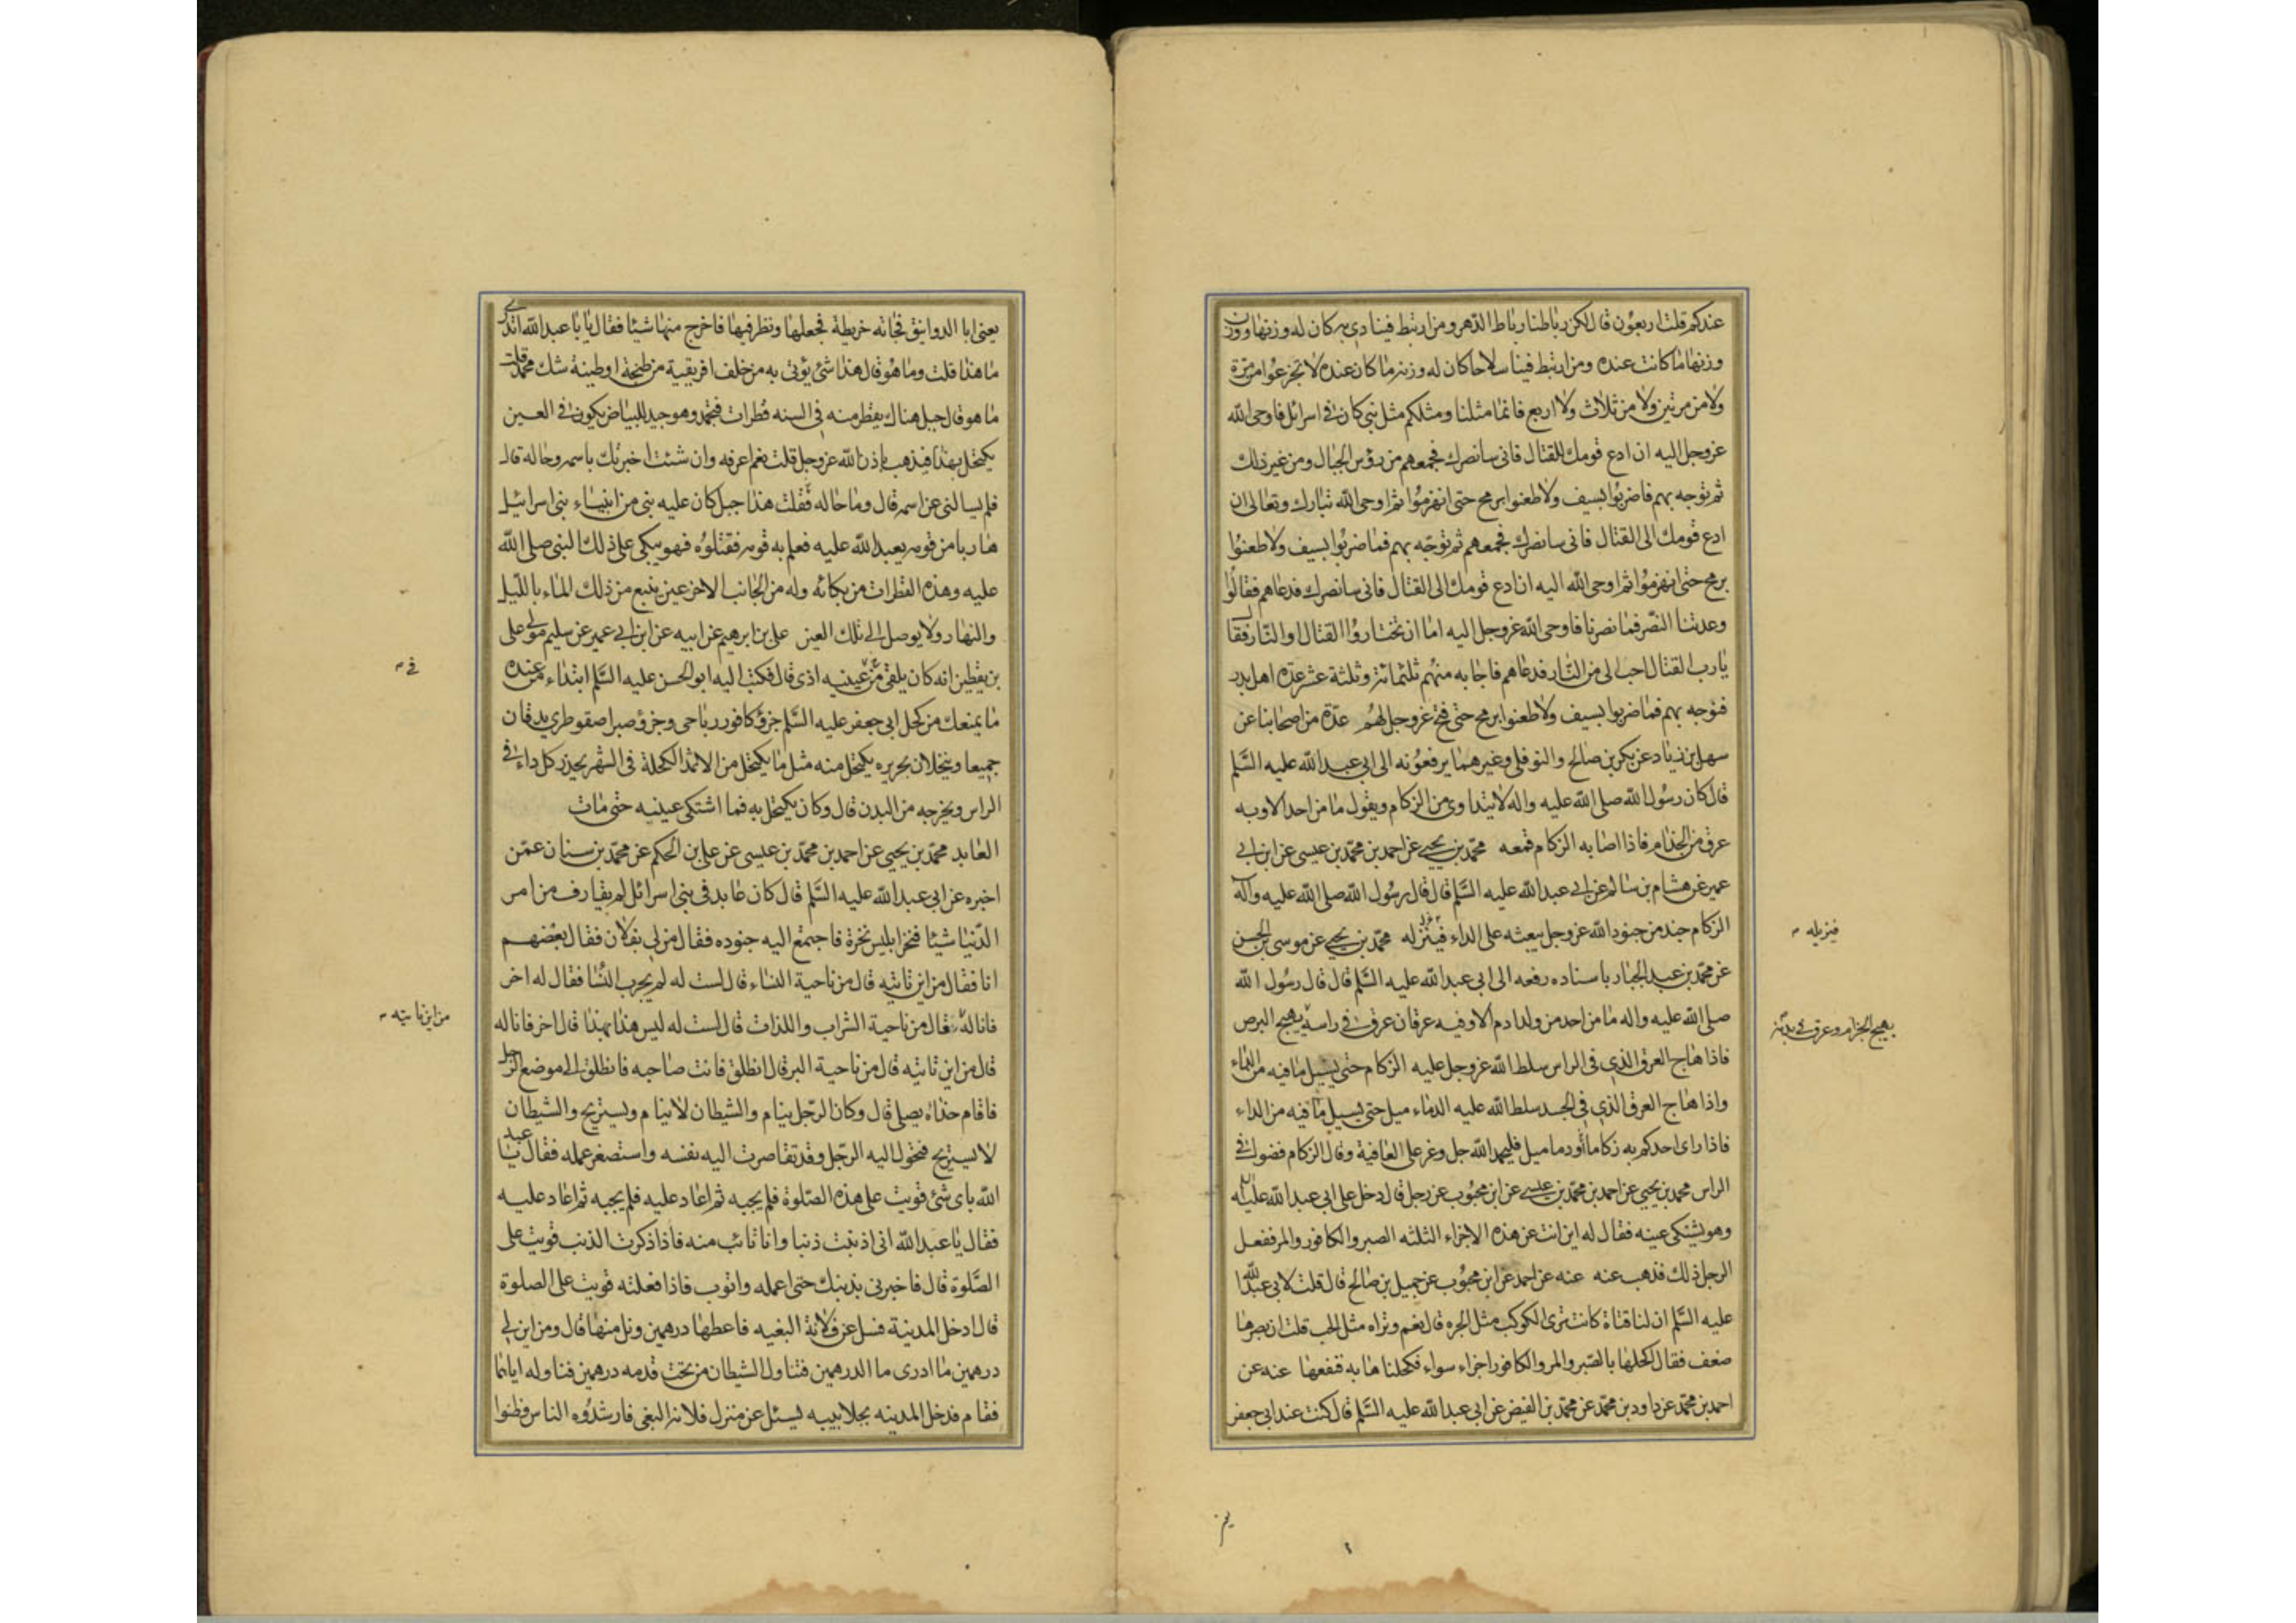 عندكم قلت اربعون قال لكن رباطنا رباط الدهر ومن ارتبط فينا دابه كان له وزنها ووزن
وزنها ما كانت عنده ومن ارتبط فينا سلاحا كان له وزنه ما كان عنده لا تجزعوا من مرة
ولا من مرتين ولا من ثلاث ولا اربع فانما مثلنا ومثلكم مثل نبي كان في اسرائل فاوحى الله
عز وجل اليه ان ادع قومك للقتال فانى سانصرك فجمعهم من رؤس الجبال ومن غير ذلك
ثم توجه بهم فما ضربوا بسيف ولا طعنوا برمح حتى انهزموا ثم اوحى الله تبارك وتعالى ان
ادع قومك الى القتال فانى سانصرك فجمعهم ثم توجه بهم فما ضربوا بسيف ولا طعنوا
برمح حتى انهزموا ثم اوحى الله اليه ان ادع قومك الى القتال فانى سانصرك فدعاهم فقالوا
وعدتنا النصر فما نصرنا فاوحى الله عز وجل اليه اما ان تختاروا القتال او النار فقال
يا رب القتال احب الى من النار فدعاهم فاجابه منهم ثلثمائة وثلثة عشر عدة اهل بدر
فتوجه بهم فما ضربوا بسيف ولا طعنوا برمح حتى فتح عز وجل لهم عدة من اصحابنا عن
سهل بن زياد عن بكر بن صالح والنوفلى وغيرهما يرفعونه الى ابى عبد الله عليه السلم
قال كان رسول الله صلى الله عليه واله لا يتداوى من الزكام ويقول ما من احد الا وبه
عرق من الجذام فاذا اصابه الزكام قمعه محمد بن يحيى عن احمد بن محمد بن عيسى عن ابن ابى
عمير عن هشام بن سالم عن ابى عبد الله عليه السلم قال قال رسول الله صلى الله عليه وآله
الزكام جند من جنود الله عز وجل يبعثه على الداء فينزله محمد بن يحيى عن موسى بن الحسن
فيزيله
عن محمد بن عبد الجبار باسناده رفعه الى ابى عبد الله عليه السلم قال قال رسول الله
صلى الله عليه واله ما من احد من ولد ادم الا وفيه عرقان عرق فى راسه يهيج البرص
يهيج الجذام وعرق فى بدنه
فاذا هاج العرق الذى فى الراس سلط الله عز وجل عليه الزكام حتى يسيل ما فيه من الداء
واذا هاج العرق الذى فى الجسد سلط الله عليه الدماميل حتى يسيل ما فيه من الداء
فاذا راى احدكم به زكاما ودماميل فليحمد الله جل وعز على العافية وقال الزكام فضول فى
الراس محمد بن يحيى عن احمد بن محمد بن عيسى عن ابن محبوب عن رجل قال دخل على ابى عبد الله عليه
وهو يشتكى عينه فقال له اين انت عن هذه الاجزاء الثلثه الصبر والكافور والمر ففعل
الرجل ذلك فذهب عنه عنه عن احمد عن ابن محبوب عن جميل بن صالح قال قلت لابى عبد الله
عليه السلم ان لنا فتاة كانت ترى الكوكب مثل الجره قال نعم وتراه مثل الحب قلت ان بصرها
ضعف فقال اكحلها بالصبر والمر والكافور اجزاء سواء فكحلناها به فنفعها عنه عن
احمد بن محمد عن داود بن محمد عن محمد بن الفيض عن ابى عبد الله عليه السلم قال كنت عند ابى جعفر
يعنى ابا الدوانيق فجائه خريطة فجعلها ونظر فيها فاخرج منها شيئا فقال يا با عبد الله اتدرى
ما هذا قلت وما هو قال هذا شئ يؤتى به من خلف افريقية من طنجة او طبنة شك محمد قلت
ما هو قال جبل هناك يقطر منه فى السنه قطرات فتجمد وهو جيد للبياض يكون فى العين
يكتحل بهذا فيذهب باذن الله عز وجل قلت نعم اعرفه وان شئت اخبرتك باسمه وحاله قال
فلم يسالنى عن اسمه قال وما حاله فقلت هذا جبل كان عليه نبى من انبياء بنى اسرائيل
هاربا من قومه يعبد الله عليه فعلم به قومه فقتلوه فهو يبكى على ذلك النبى صلى الله
عليه وهذه القطرات من بكائه وله من الجانب الاخر عين ينبع من ذلك الماء بالليل
والنهار ولا يوصل الى تلك العين على بن ابرهيم عن ابيه عن ابن ابى عمير عن سليم مولى على
بن يقطين انه كان يلقى من عينيه اذى قال فكتب اليه ابو الحسن عليه السلم ابتداء من عنده
ما يمنعك من كحل ابى جعفر عليه السلم جزؤ كافور رباحى وجزؤ صبر اصقوطرى يدقان
جميعا وينخلان بحريره يكتحل منه مثل ما يكتحل من الاثمد الكحلة فى الشهر يحدر كل داء فى
الراس ويخرجه من البدن قال وكان يكتحل به فما اشتكى عينيه حتى مات
العابد محمد بن يحيى عن احمد بن محمد بن عيسى عن على بن الحكم عن محمد بن سنان عمن
اخبره عن ابى عبد الله عليه السلم قال كان عابد فى بنى اسرائل لم يقارف من امر
الدنيا شيئا فنخر ابليس نخرة فاجتمع اليه جنوده فقال من لى بفلان فقال بعضهم
انا فقال من اين تاتيه قال من ناحية النساء قال لست له لم يجرب النسا فقال له اخر
فانا له قال من ناحية الشراب واللذات قال لست له ليس هذا بهذا قال اخر فانا له
من اين تاتيه
قال من اين تاتيه قال من ناحية البر قال انطلق فانت صاحبه فانطلق الى موضع الرجل
فاقام حذاه يصلى قال وكان الرجل ينام والشيطان لا ينام ويستريح والشيطان
لا يستريح فتحول اليه الرجل وقد تقاصرت اليه نفسه واستصغر عمله فقال يا عبد
الله باى شئ قويت على هذه الصلوة فلم يجبه ثم اعاد عليه فلم يجبه ثم اعاد عليه
فقال يا عبد الله انى اذنبت ذنبا وانا تائب منه فاذا ذكرت الذنب قويت على
الصلوة قال فاخبرنى بذنبك حتى اعمله واتوب فاذا فعلته قويت على الصلوة
قال ادخل المدينة فسل عن فلانة البغيه فاعطها درهمين ونل منها قال ومن اين لى
درهمين ما ادرى ما الدرهمين فتناول الشيطان من تحت قدمه درهمين فناوله اياهما
فقام فدخل المدينه بجلابيبه يسئل عن منزل فلانه البغى فارشدوه الناس وظنوا